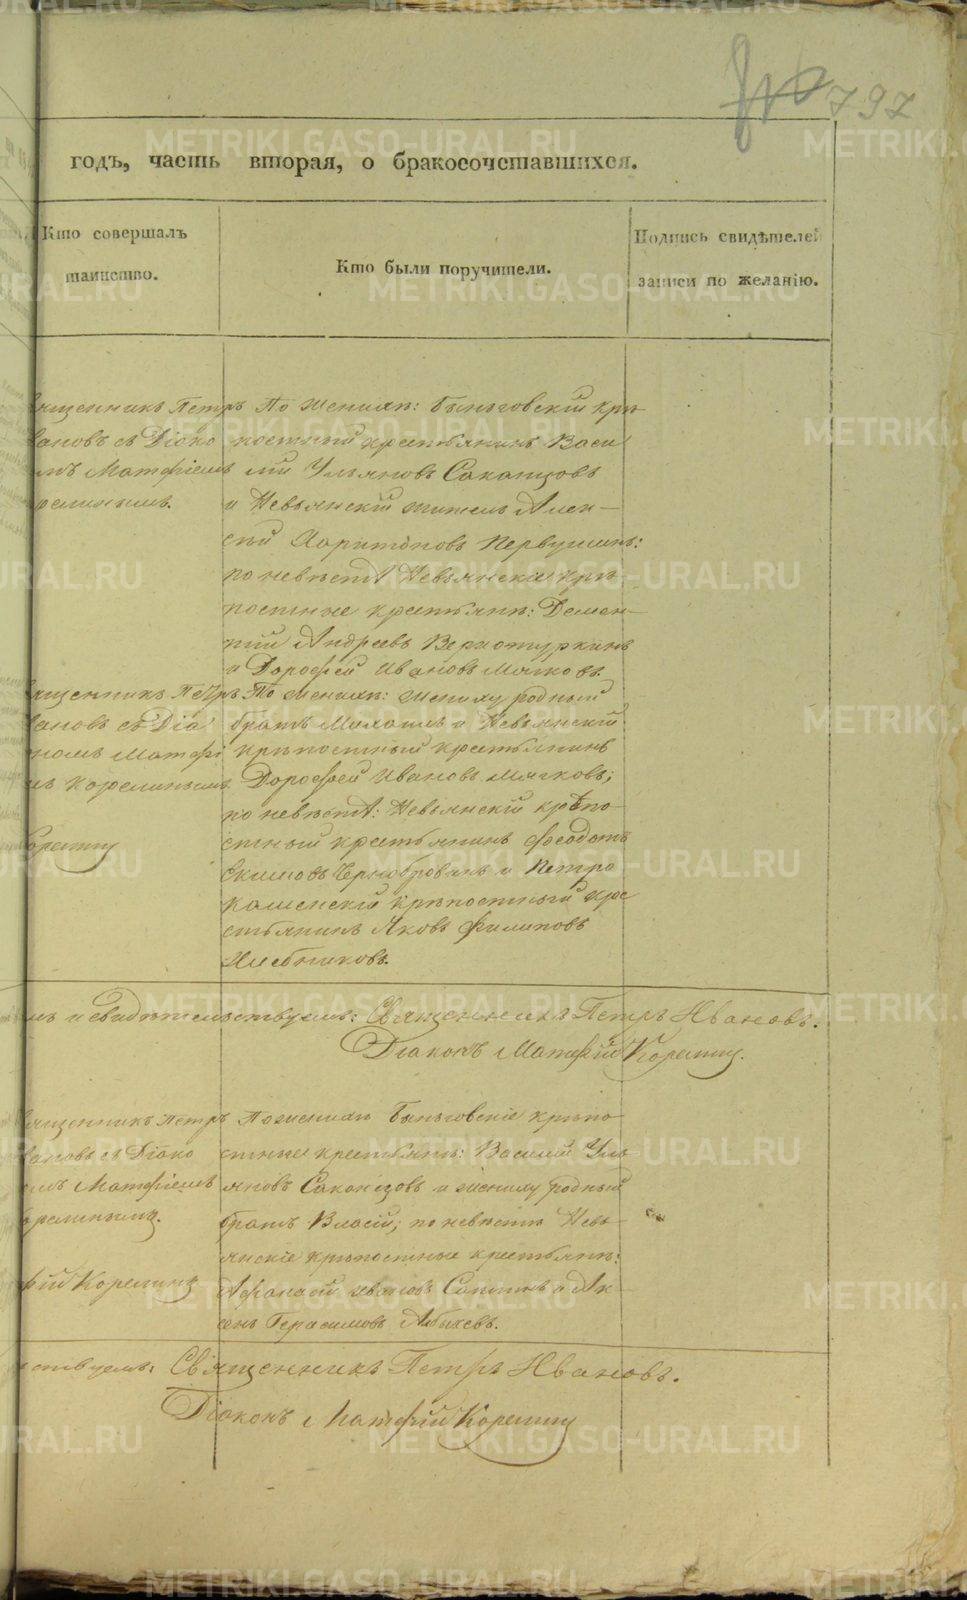 797
годъ, часть вторая, о бракосочетавшихся.
Кто совершалъ
таинство.
Кто были поручители.
Подпись свидѣтелей
записи по желанію.
священникъ Петръ
Ивановъ съ Діако
омъ Матфіемъ
Корелинымъ.
По женихѣ: Быньговскій крѣ
постный крестьянинъ Васи
лій Ульяновъ Саканцовъ
и Невьянскій житель Алек-
сѣй Харитоновъ Первушинъ:
по невѣстѣ Невьянскіе крѣ
постные крестьяне: Демен-
тій Андреевъ Верхотуркинъ
и Дорофей Ивановъ Мягковъ.
священникъ Петръ
Ивановъ съ Діа
кономъ Матфі
мъ Корелинымъ
Корелинъ
По женихѣ: жениху родный
братъ Михаилъ и Невьянскій
крѣпостный крестьянинъ
Дорофей Ивановъ Мягковъ;
по невѣстѣ: Невьянскій крѣпо
стный крестьянинъ Феодотъ
Екимовъ Чернобровинъ и Петро
каменскій крѣпостный кре
стьянинъ Яковъ Филиповъ
Хлебниковъ.
мъ и свидѣтельствуемъ: Священникъ Петръ Ивановъ.
Діаконъ Матфій Корелинъ.
священникъ Петръ
Ивановъ съ Діако
омъ Матфіемъ
Корелинымъ.
фій Корелинъ
По женихѣ Быньговскіе крѣпо
стные крестьяне: Василій Уль
яновъ Саканцовъ и жениху родный
братъ Власій; по невѣстѣ Невь-
янскіе крѣпостные крестьяне:
Афанасій Ивановъ Сапинъ и Ак-
сенъ Герасимовъ
ствуемъ: Священникъ Петръ Ивановъ.
Діаконъ Матфій Корелинъ
METRIKI.GASO-URAL.RU